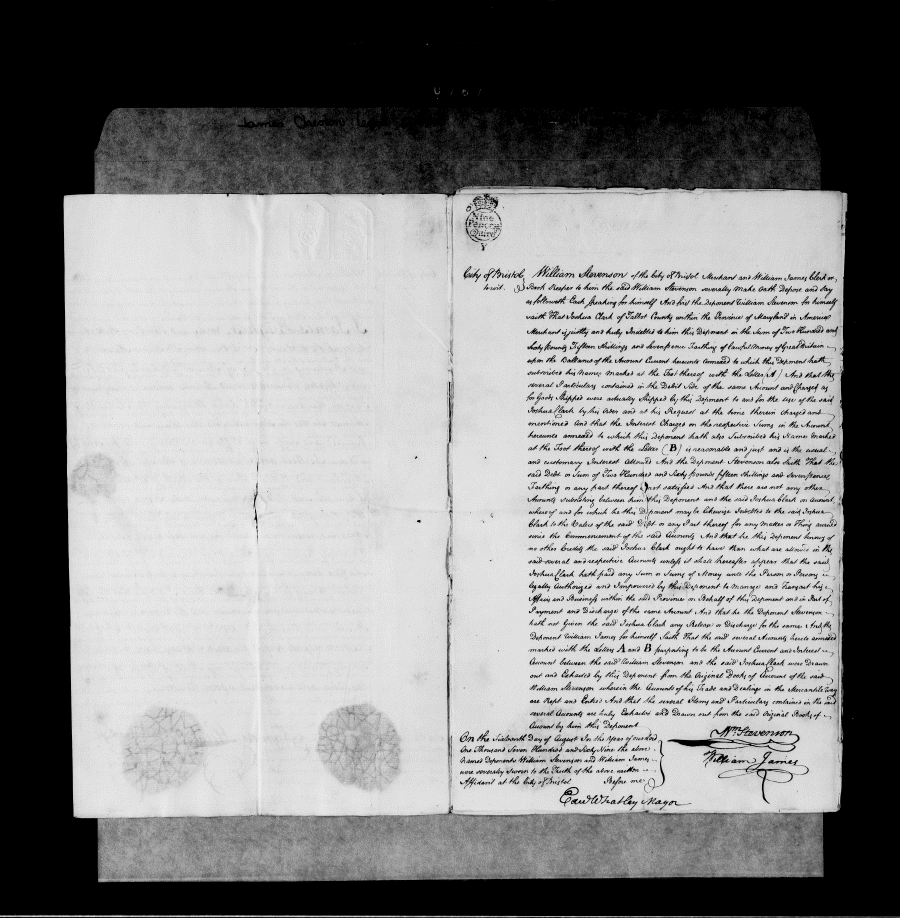 James
Nine
Pence pr
Quire
City of Bristol
to wit.
William Stevenson of the City of Bristol Merchant and William James Clerk or
Book Keeper to him the said William Stevenson severally make Oath Depose and Say
as followeth Each speaking for himself And first the deponent William Stevenson for himself
saith That Joshua Clark of Talbot County within the Province of Maryland in America
Merchant is justly and truly Indebted to him this Deponent in the Sum of Two Hundred and
Sixty Pounds Fifteen Shillings and Sevenpence Farthing of lawful Money of Great Britain
upon the Ballance of the Account Current hereunto annexed to which this deponent hath
subscribed his Name, marked at the Foot thereof with the Letter (A) And that the
several Particulars contained in the Debit Side of the same Account and Charged as
for Goods Shipped were actually Shipped by this Deponent to and for the Use of the said
Joshua Clark by his Order and at his Request at the time therein charged and
mentioned And that the Interest Charged on the respective Sums in the Account
hereunto annexed to which this deponent hath also Subscribed his Name Marked
at the Foot thereof with the Letter (B) is reasonable and just and is the usual
and customary Interest allowed And the Deponent Stevenson also Saith That the
said Debt or Sum of Two Hundred and Sixty pounds fifteen shillings and Sevenpence
Farthing or any part thereof is not satisfied And that there are not any other
Accounts subsisting between him this Deponent and the said Joshua Clark on Account
whereof and for which he this Deponent may be likewise Indebted to the said Joshua
Clark to the Value of the said Debt or any Part thereof for any Matter or Thing accrued
since the Commencement of the said Accounts And that he this deponent knows of
no other Credits the said Joshua Clark ought to have than what are allowed in the
said several and respective Accounts unless it shall hereafter appear that the said
Joshua Clark hath paid any Sum or Sums of Money unto the Person or Persons
legally Authorized and Impowered by this Deponent to manage and Transact his
Affairs and Business within the said Province on Behalf of this deponent and in Part of
Payment and Discharge of the same Account And that he the Deponent Stevenson
hath not Given the said Joshua Clark any Release or Discharge for the same And the
Deponent William James for himself Saith That the said several Accounts hereto annexed
marked with the Letters A and B purporting to be the Account Current and Interest
Account between the said William Stevenson and the said Joshua Clark were Drawn
out and Extracted by this Deponent from the Original Books of Account of the said
William Stevenson wherein the Accounts of his Trade and Dealings in the Mercantile Way
are kept and Entred And that the several Items and Particulars contained in the said
several Accounts are truly Extracted and Drawn out from the said Original Books of
Account by him this Deponent
On the Sixteenth Day of August In the Year of our Lord
One Thousand Seven Hundred and Sixty Nine the above
Named Deponents William Stevenson and William James
were severally Sworn to the Truth of the above written
Affidavit at the City of Bristol Before me
Wm. Stevenson
William James
Edwd Whatley Mayor